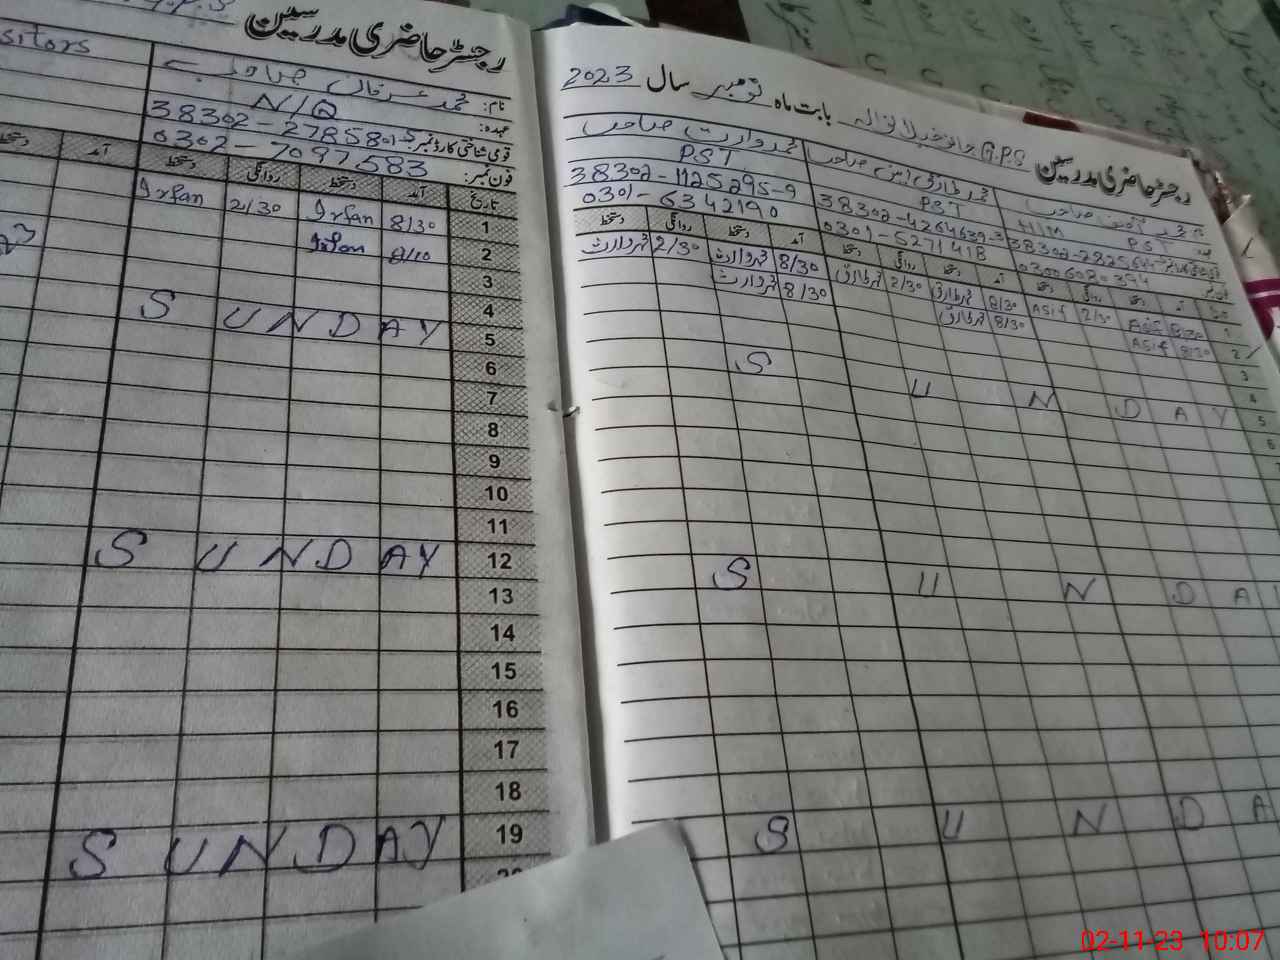 رجسٹر حاضری مدرسین
sitors
نام: محمد عرفان صاحب
عہدہ: N/Q
قومی شناختی کارڈ نمبر: 38302-2785801-5
فون نمبر: 0302-7097583
تاریخ آمد دستخط روانگی دستخط آمد دستخط
1 8/30 Irfan 2/30 Irfan
2 8/10 Irfan
3
4
5 SUNDAY
6
7
8
9
10
11
12 SUNDAY
13
14
15
16
17
18
19 SUNDAY
رجسٹر حاضری مدرسین G.P.S بابت ماہ نومبر سال 2023
محمد طارق امین صاحب محمد وارث صاحب
H/M PST PST PST
38302-4264639-3 38302-1125295-9
03006080394 0301-5271418 0301-6342190
آمد دستخط روانگی دستخط آمد دستخط روانگی دستخط آمد دستخط روانگی دستخط
1 8/30 Asif 2/30 Asif 8/30 محمد طارق 2/30 محمد طارق 8/30 محمد وارث 2/30 محمد وارث
2 8/30 Asif 8/30 محمد طارق 8/30 محمد وارث
3
4
5 SUNDAY
6
SUNDA
SUNDA
02-11-23 10:07